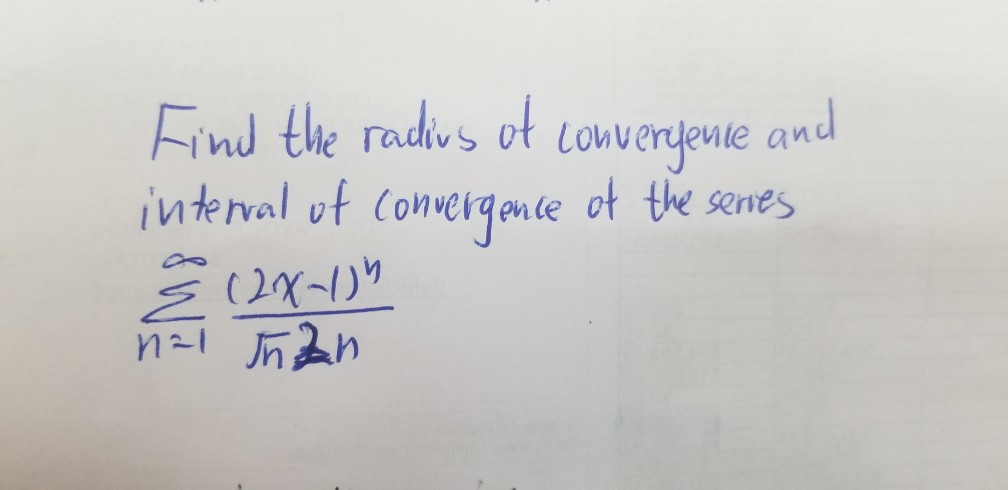 Find the radius of convergence and
interval of convergence of the series
∞
Σ (2x-1)ⁿ
n=1 √n 2n